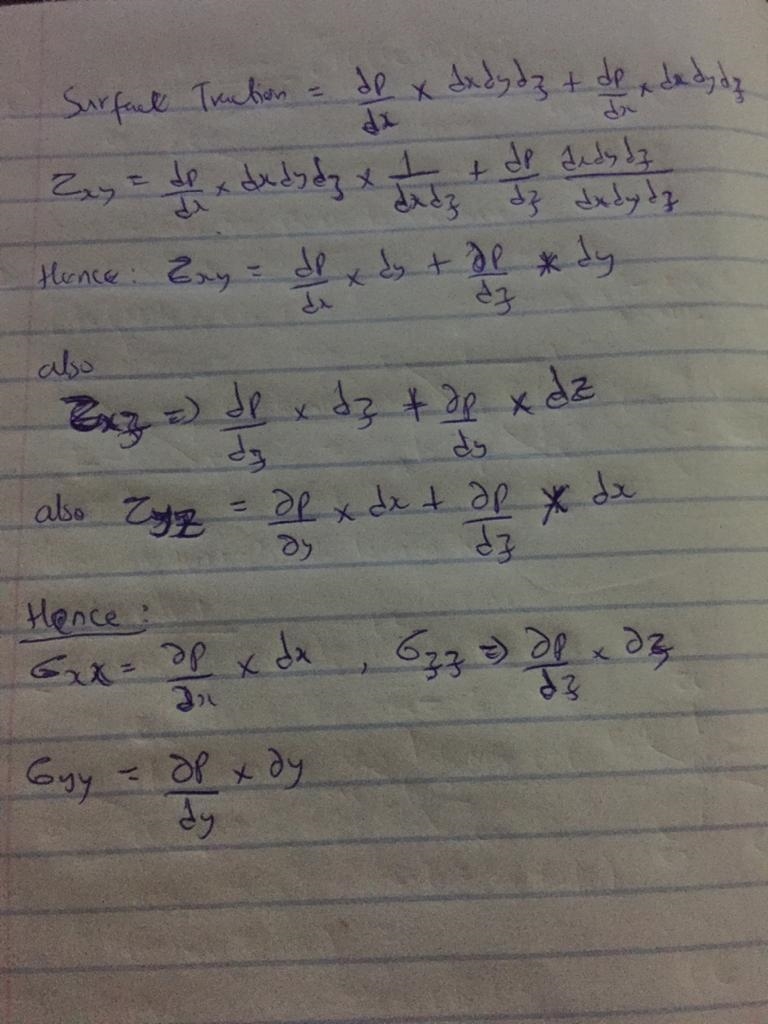 Surface Traction = dp/dx × dxdydz + dp/dx × dxdydz
τxy = dp/dx × dxdydz × 1/dxdz + dp/dz dxdydz/dxdydz
Hence: τxy = dp/dx × dy + ∂p/dz * dy
also
τxz => dp/dz × dz + ∂p/dy × dz
also τyz = ∂p/∂y × dx + ∂p/dz × dx
Hence:
σxx = ∂p/∂x × dx , σzz => ∂p/dz × ∂z
σyy = ∂p/dy × ∂y